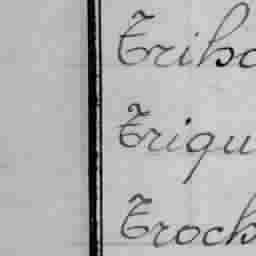 Tribo
Triqu
Troch